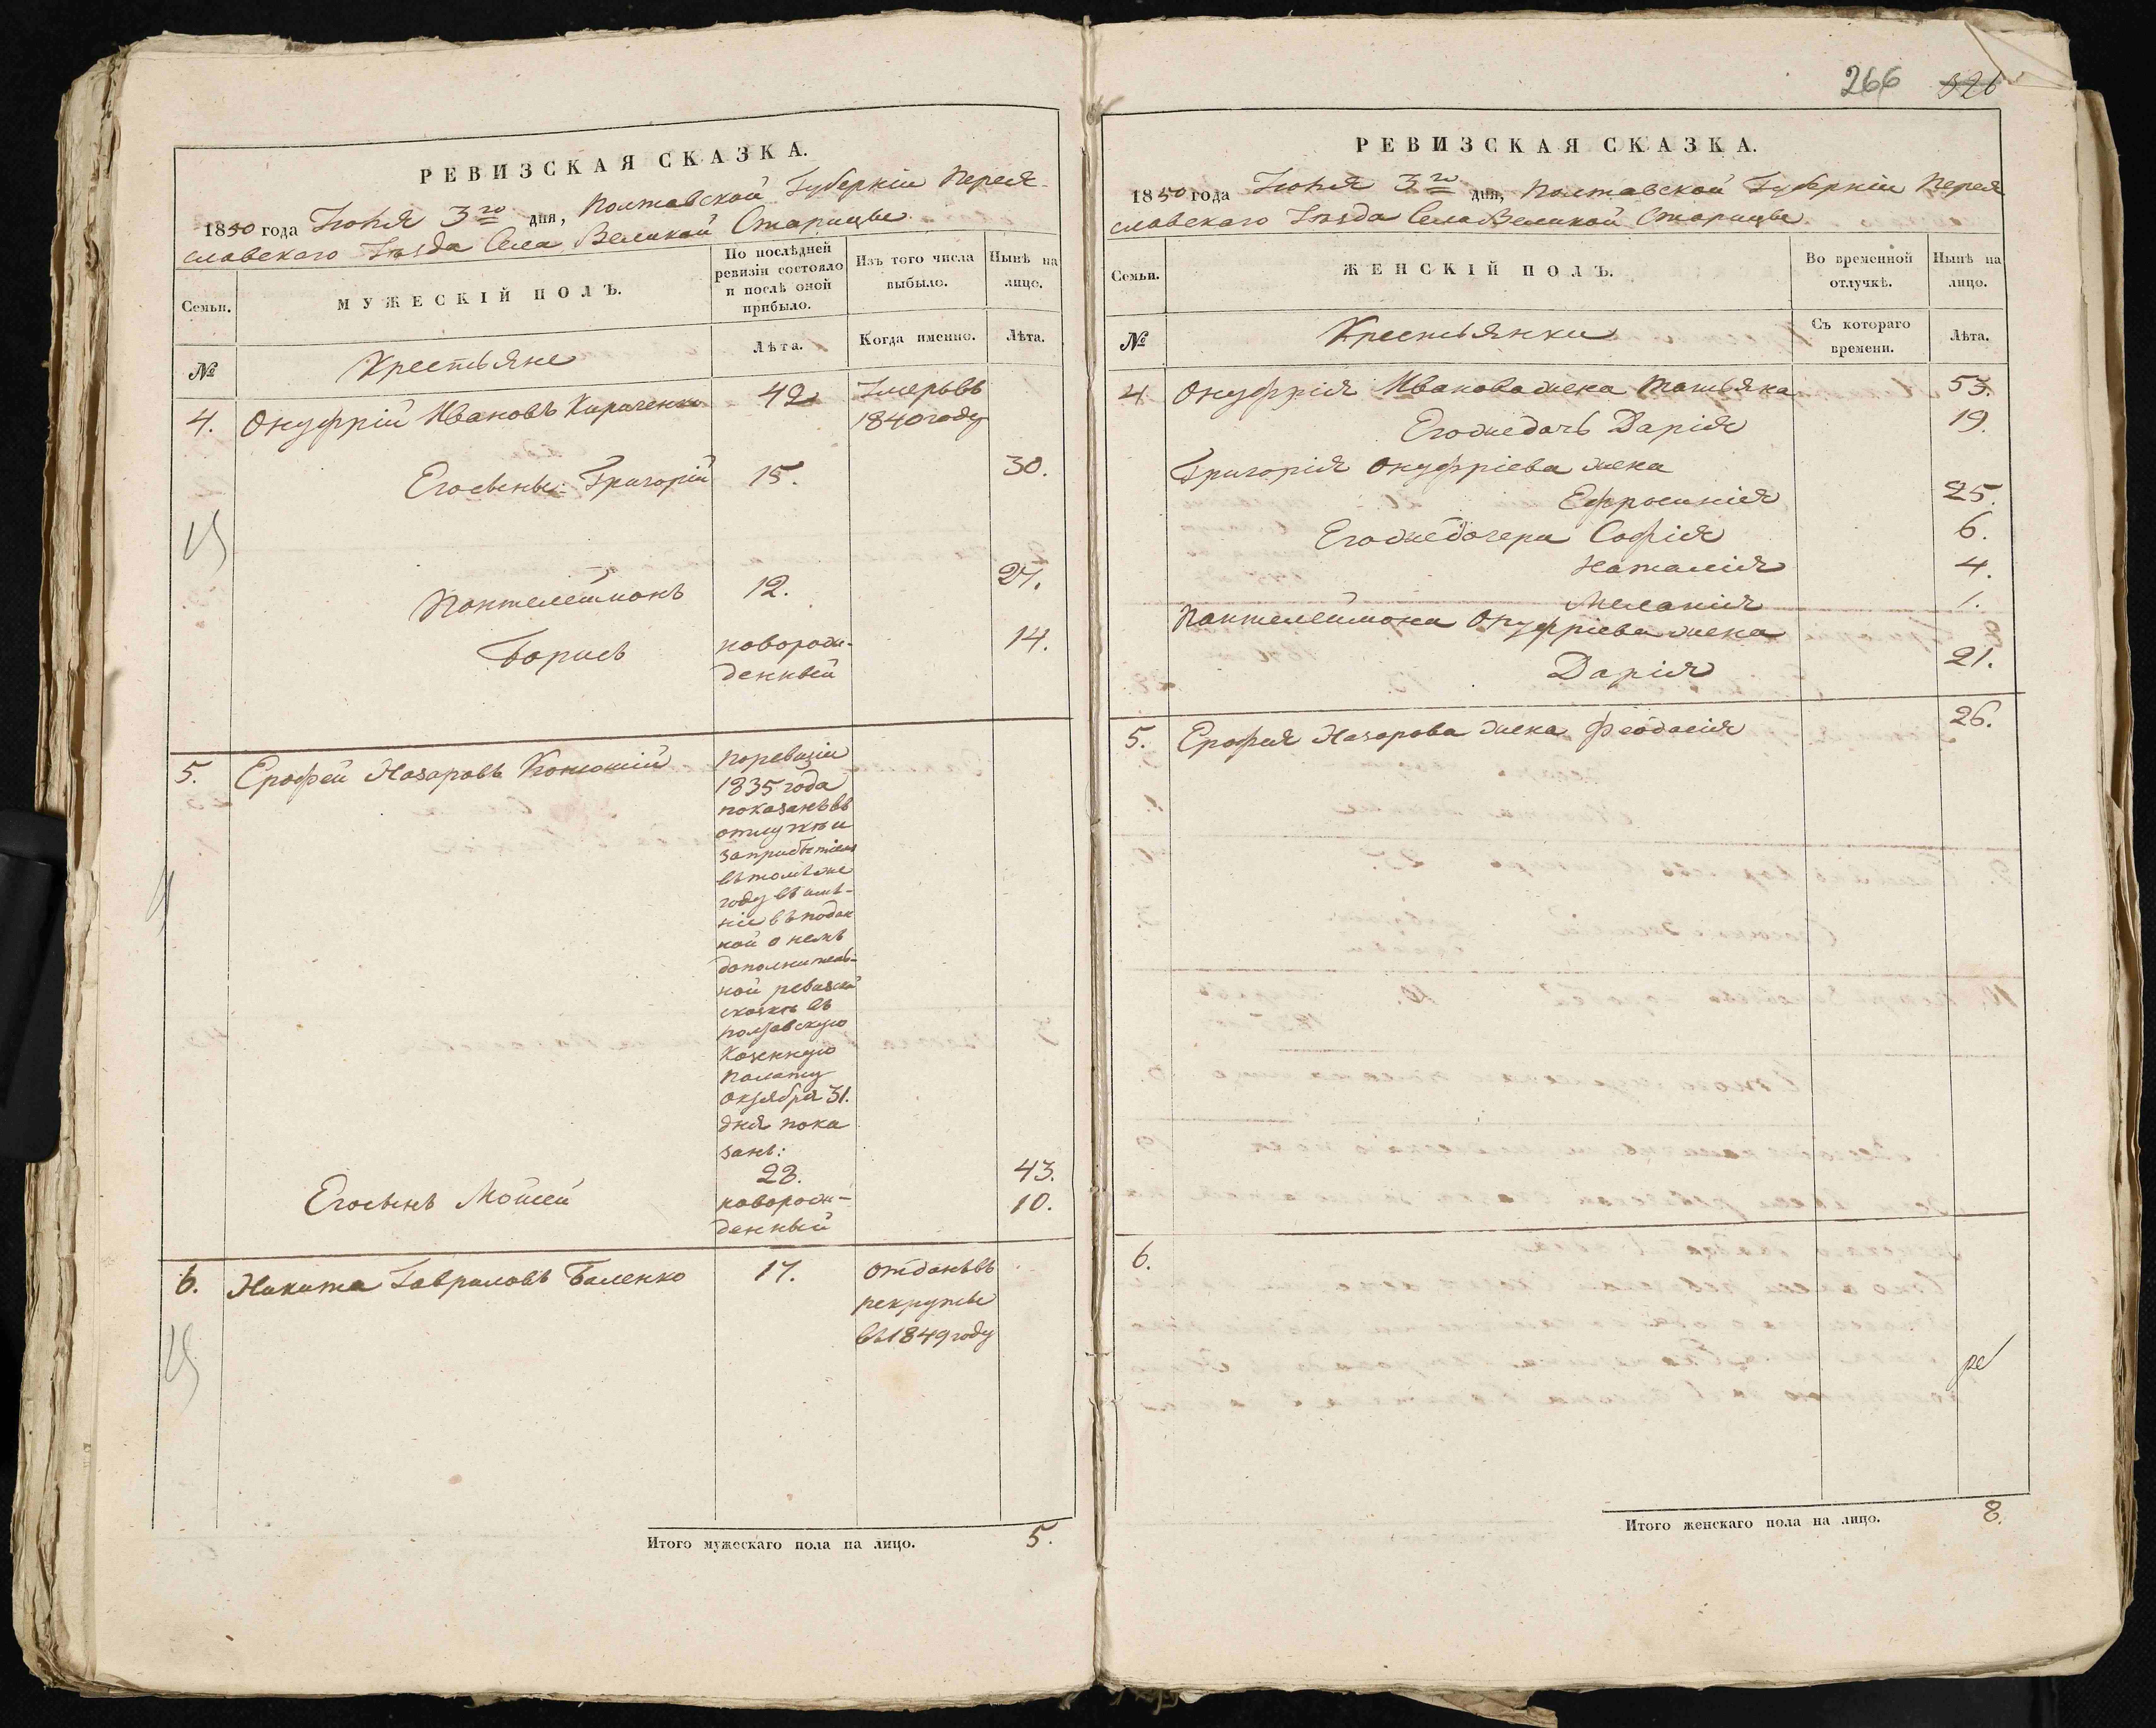 РЕВИЗСКАЯ СКАЗКА.
1850 года Іюня 3го дня, Полтавской Губерніи Перея-
славскаго Уѣзда Села Великой Старицы.
Семьи.
МУЖЕСКІЙ ПОЛЪ.
По послѣдней ревизіи состояло и послѣ оной прибыло.
Изъ того числа выбыло.
Нынѣ на лицо.
№
Крестьяне
Лѣта.
Когда именно.
Лѣта.
4. Онуфрій Ивановъ Кириченко 42 Умеръ въ
1840 году
Его сыны: Григорій 15. 30.
Пантелеймонъ 12. 27.
Борисъ новорож- 14.
денный
5. Ерофей Назаровъ поревизіи
1835 года
показанъ въ
отлучкѣ и
заприбытіем
въ томъ же
году въ имѣ-
ніе въ подан
ной о немъ
дополнитель-
ной ревизской
сказкѣ въ
полтавскую
Казенную
Палату
Октября 31.
дня пока
занъ:
28. 43.
Его сынъ Мойсей новорож- 10.
денный
6. Никита Гавриловъ Баленко 17. отданъ въ
рекруты
въ 1849 году
Итого мужескаго пола на лицо. 5.
266 326
РЕВИЗСКАЯ СКАЗКА.
1850 года Іюня 3го дня, Полтавской Губерніи Перея
славскаго Уѣзда Села Великой Старицы
Семьи.
ЖЕНСКІЙ ПОЛЪ.
Во временной отлучкѣ.
Нынѣ на лицо.
№
Крестьянки
Съ котораго времени.
Лѣта.
4 Онуфрія Иванова жена Татьяна 53.
Его же дочь Дарія 19.
Григорія Онуфріева жена
Ефросинія 25.
Его же дочери Софія 6.
Наталія 4.
Меланія 1.
Пантелеймона Онуфріева жена
Дарія 21.
5. Ерофея Назарова жена Феодосія 26.
6.
Итого женскаго пола на лицо. 8.